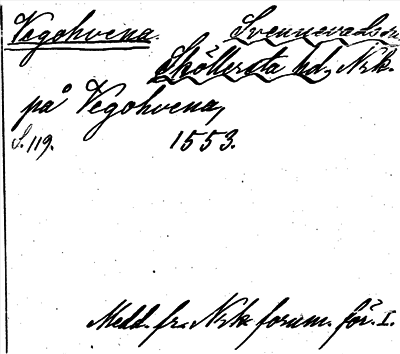 Vegohvena. Svennevads sn
Sköllersta hd, Nrk.
på Vegohvena,
S. 119. 1553.
Medd. fr. Nrk forum. för. I.